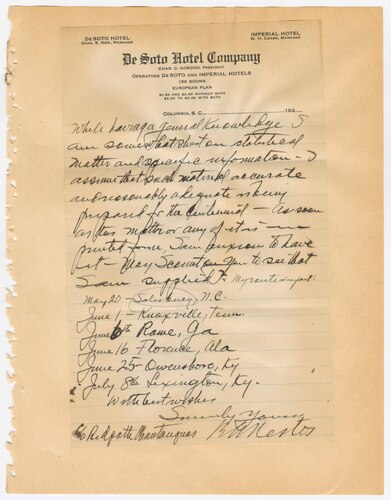 DE SOTO HOTEL
CHAS. E. NEW, MANAGER
IMPERIAL HOTEL
W. H. COHEN, MANAGER
De Soto Hotel Company
CHAS. D. GORDON, PRESIDENT
OPERATING DE SOTO AND IMPERIAL HOTELS
150 ROOMS
EUROPEAN PLAN
$1.50 AND $2.00 WITHOUT BATH
$2.00 TO $4.00 WITH BATH
COLUMBIA, S. C. 192
While having a general knowledge I
am somewhat short on statistical
matter and specific information - I
assume that such material accurate
and reasonably adequate is being
prepared for the Centennial - As soon
as this matter or any of it is in
printed form, I am anxious to have
it - May I count on you to see that
I am supplied? My route in part:
May 20 - Salisbury, N.C.
June 1 - Knoxville, Tenn.
June 6th Rome, Ga
June 16 Florence, Ala
June 25 Owensboro, Ky
July 8th Lexington, Ky.
With best wishes
Sincerely Yours
c/o Redpath Chautauquas